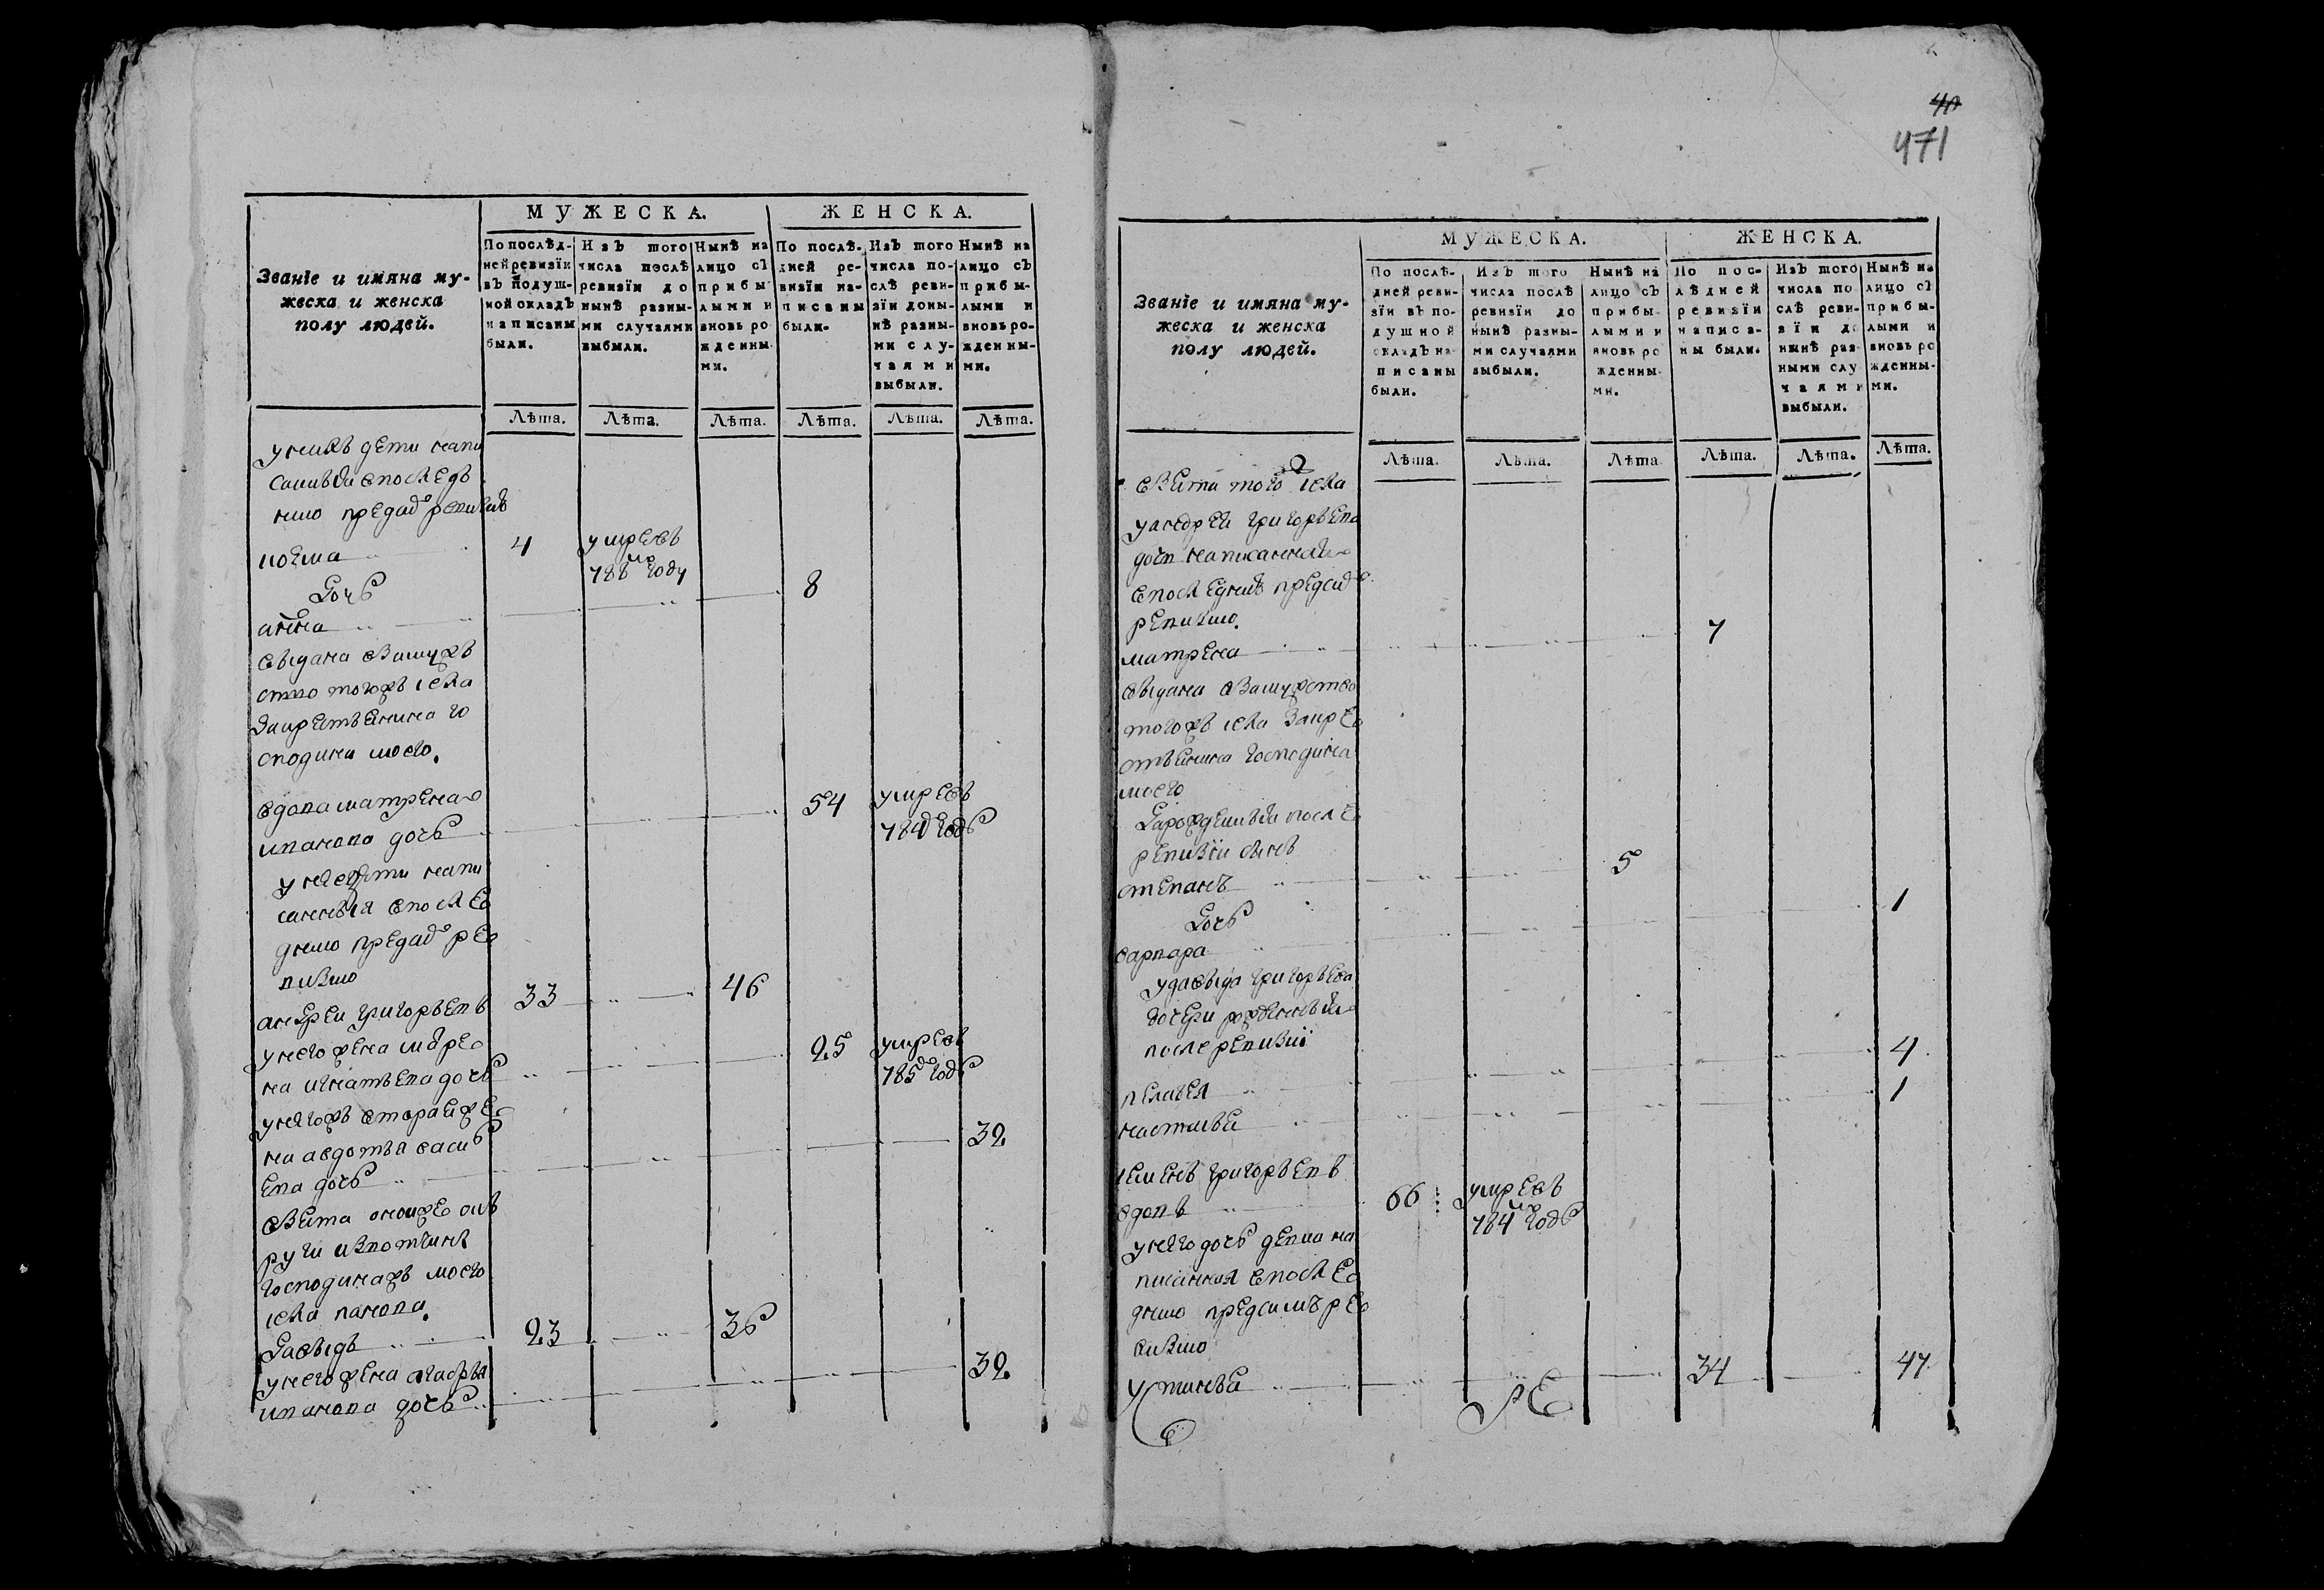 МУЖЕСКА.
ЖЕНСКА.
Званіе и имяна му-
жеска и женска
полу людей.
По послѣд-
ней ревизіи
въ подуш-
ной окладъ
написаны
были.
Изъ того
числа послѣ
ревизіи до
нынѣ разны-
ми случаями
выбыли.
Нынѣ на
лицо съ
прибы-
лыми и
вновь ро-
жденны-
ми.
По послѣ-
дней ре-
визіи на-
писаны
были.
Изъ того
числа по-
слѣ реви-
зіи доны-
нѣ разны-
ми слу-
чаями
выбыли.
Нынѣ на
лицо съ
прибы-
лыми и
вновь ро-
жденны-
ми.
Лѣта. Лѣта. Лѣта. Лѣта. Лѣта. Лѣта.
у нихъ дети напи
саныя въ последъ
нею предъ ревизию
4 умре въ
786 году
Дочь
анна 8
выдана в замужъ
ство тогожъ села
за крестьянина го
сподина моего.
вдова матрена
иванова дочь 54 умре въ
784 годѣ
у нея дети напи
санныя в после
днею предъ ре
визию
андрей григорьевъ 33 46
у него жена
игнатьева дочь 25 умре въ
785 годѣ
у него жъ вторая же
на авдотья васи
ева дочь 32
взята оной же ок
руги из вотчины
господина жъ моего
села панова.
Давыдъ 23 36
у него жена агафья
иванова дочь 32.
471
МУЖЕСКА.
ЖЕНСКА.
Званіе и имяна му-
жеска и женска
полу людей.
По послѣ-
дней реви-
зіи въ по-
душной
окладъ на-
писаны
были.
Изъ того
числа послѣ
ревизіи до
нынѣ разны-
ми случаями
выбыли.
Нынѣ на
лицо съ
прибы-
лыми и
вновь ро
жденны-
ми.
По пос-
лѣдней
ревизіи
написа-
ны были.
Изъ того
числа по
слѣ реви-
зіи до
нынѣ раз
ными слу
чаями
выбыли.
Нынѣ на
лицо съ
прибы-
лыми и
вновь ро
жденны-
ми.
Лѣта. Лѣта. Лѣта. Лѣта. Лѣта. Лѣта.
взята того села
у андрея григорьева
дочь написанная
в последнею предъ
ревизию.
матрена 7
выдана в замужство
тогожъ села за кре
стьянина господина
моего
Рожденныя после
ревизіи сынъ
степанъ 5
Дочь
варвара 1
у давыда григорьева
дочери рожденныя
после ревизіи
пелагея 4
настасья 1
семенъ григорьевъ
вдовъ 66 умре въ
784 годѣ
у него дочь девка на
писанная в после
днею предъ сим ре
визию
устинья 34 47